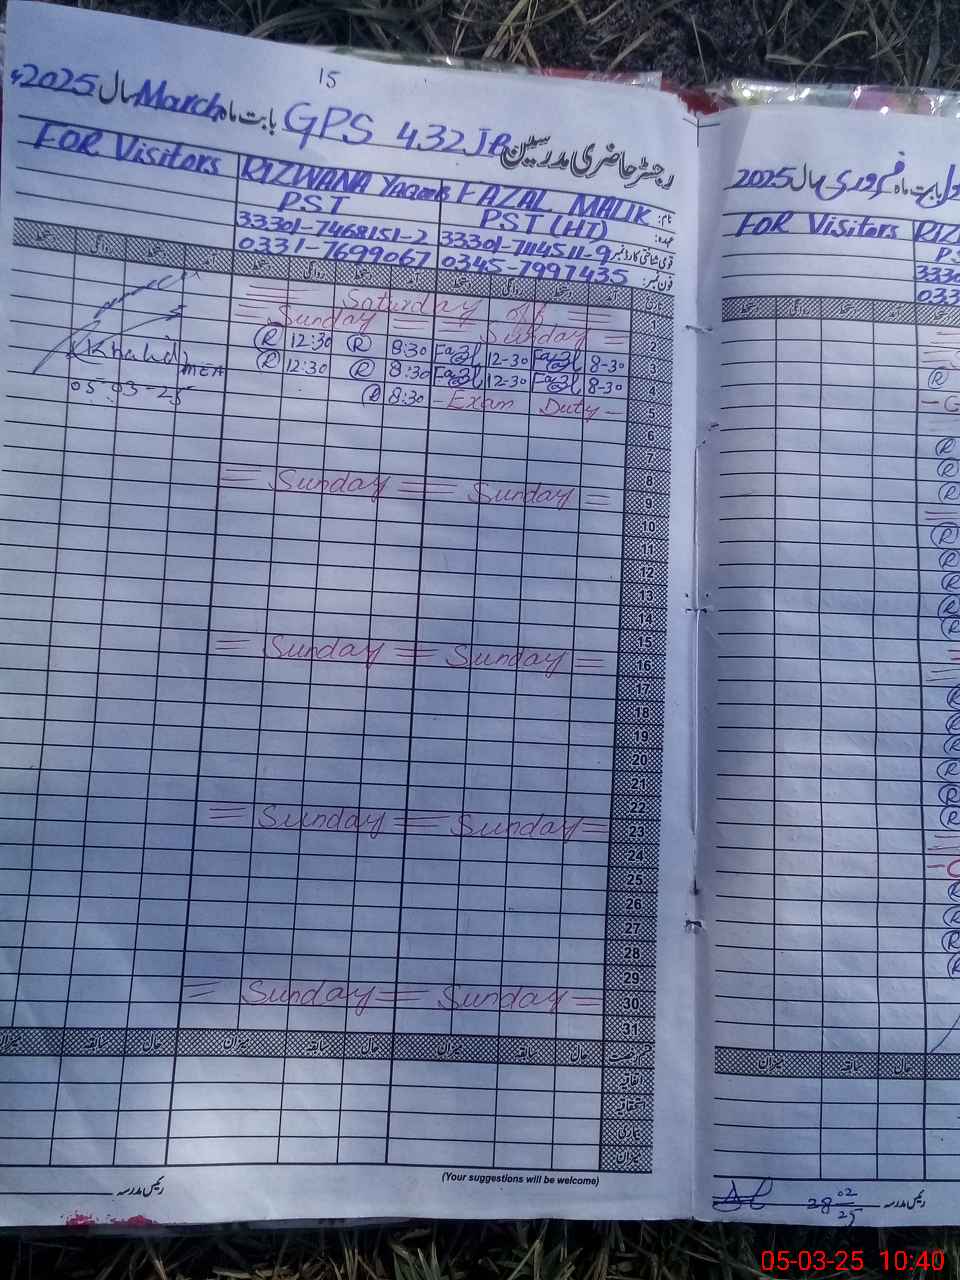 15
رجسٹر حاضری مدرسین GPS 432 JB بابت ماہ March سال 2025ء
نام: FAZAL MALIK RIZWANA YAQOOB FOR Visitors
عہدہ: PST (HT) PST
قومی شناختی کارڈ نمبر 33301-7114511-9 33301-7468151-2
فون نمبر: 0345-7997435 0331-7699067
تاریخ آمد دستخط روانگی دستخط آمد دستخط روانگی دستخط آمد دستخط روانگی دستخط
1 Saturday off
2 Sunday Sunday
3 8-30 Fazal 12-30 Fazal 8:30 R 12:30 R
4 8-30 Fazal 12-30 Fazal 8:30 R 12:30 R
5 - Exam Duty - 8:30 R
Khalid
MEA
05-03-25
6
7
8
9 Sunday Sunday
10
11
12
13
14
15
16 Sunday Sunday
17
18
19
20
21
22
23 Sunday Sunday
24
25
26
27
28
29
30 Sunday Sunday
31
قسم رخصت حال سابقہ میزان حال سابقہ میزان حال سابقہ میزان
اتفاقیہ
استحقاقیہ
بیماری
میزان
(Your suggestions will be welcome)
رئیس مدرسہ
بابت ماہ فروری سال 2025
FOR Visitors
حال سابقہ میزان
رئیس مدرسہ 28 02 25
05-03-25 10:40